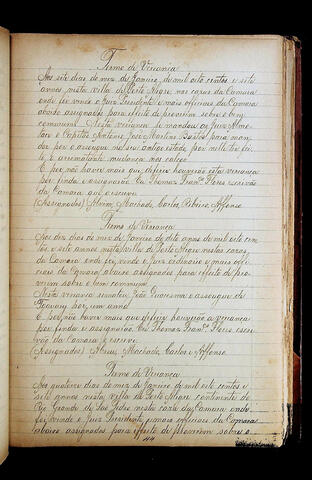 Termo de Vereança
Aos sete dias do mez de Janeiro de mil oito centos e sete
annos nesta villa de Porto Alegre nas cazas da Camara
onde foi vindo o Juiz Presidente e mais officiaes da Camara
abaixo assignados para effeito de proverem sobre o bem
commum. Nesta vereança se mandou ao Juiz Almo-
tacé o Capitão Antonio José Martins Bastos para man-
dar por o assougue no seu antigo estado por
o arrematante mudança nos
E por não haver mais que deferir houverão esta vereança
por finda e assignarão. Eu Thomaz Franco Flores escrivão
da Camara que o escrevi
(Assignados) Machado, Castro, Ribeiro, Affonso.
Termo de Vereança
Aos dez dias do mez de Janeiro de oito annos de mil oito cen-
tos e sete annos nesta villa de Porto Alegre nestas cazas
da Camara onde foi vindo o Juiz ordinario e mais offi-
ciaes da Camara abaixo assignados para effeito de pro-
verem sobre o bem commum.
Nesta vereança rematou João o assougue de
por um anno.
E por não haver mais que deferir houverão a vereança
por finda e assignarão. Eu Thomaz Franco Flores escri-
vão da Camara o escrevi
(Assignados) Abreu, Machado, Castro e Affonso.
Termo de Vereança
Aos quatorze dias do mez de Janeiro de mil oito centos e
sete annos nesta villa de Porto Alegre continente do
Rio Grande de São Pedro nesta caza da Camara onde
foi vindo o Juiz Presidente e mais officiaes da Camara
abaixo assignados para effeito de proverem sobre o